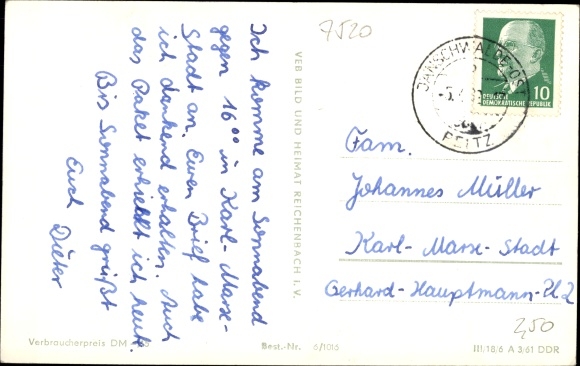 7520
Ich komme am Sonnabend
gegen 16⁰⁰ in Karl-Marx-
Stadt an. Euren Brief habe
ich dankend erhalten. Auch
das Paket erhielt ich heute.
Bis Sonnabend grüßt
Euch
Dieter
VEB BILD UND HEIMAT REICHENBACH I. V.
JÄNSCHWALDE-OST
PEITZ
DEUTSCHE
DEMOKRATISCHE REPUBLIK
10
Fam.
Johannes Müller
Karl-Marx-Stadt
Gerhard-Hauptmann-Pl 2
2,50
Verbraucherpreis DM
Best.-Nr. 6/1015
III/18/6 A 3/61 DDR